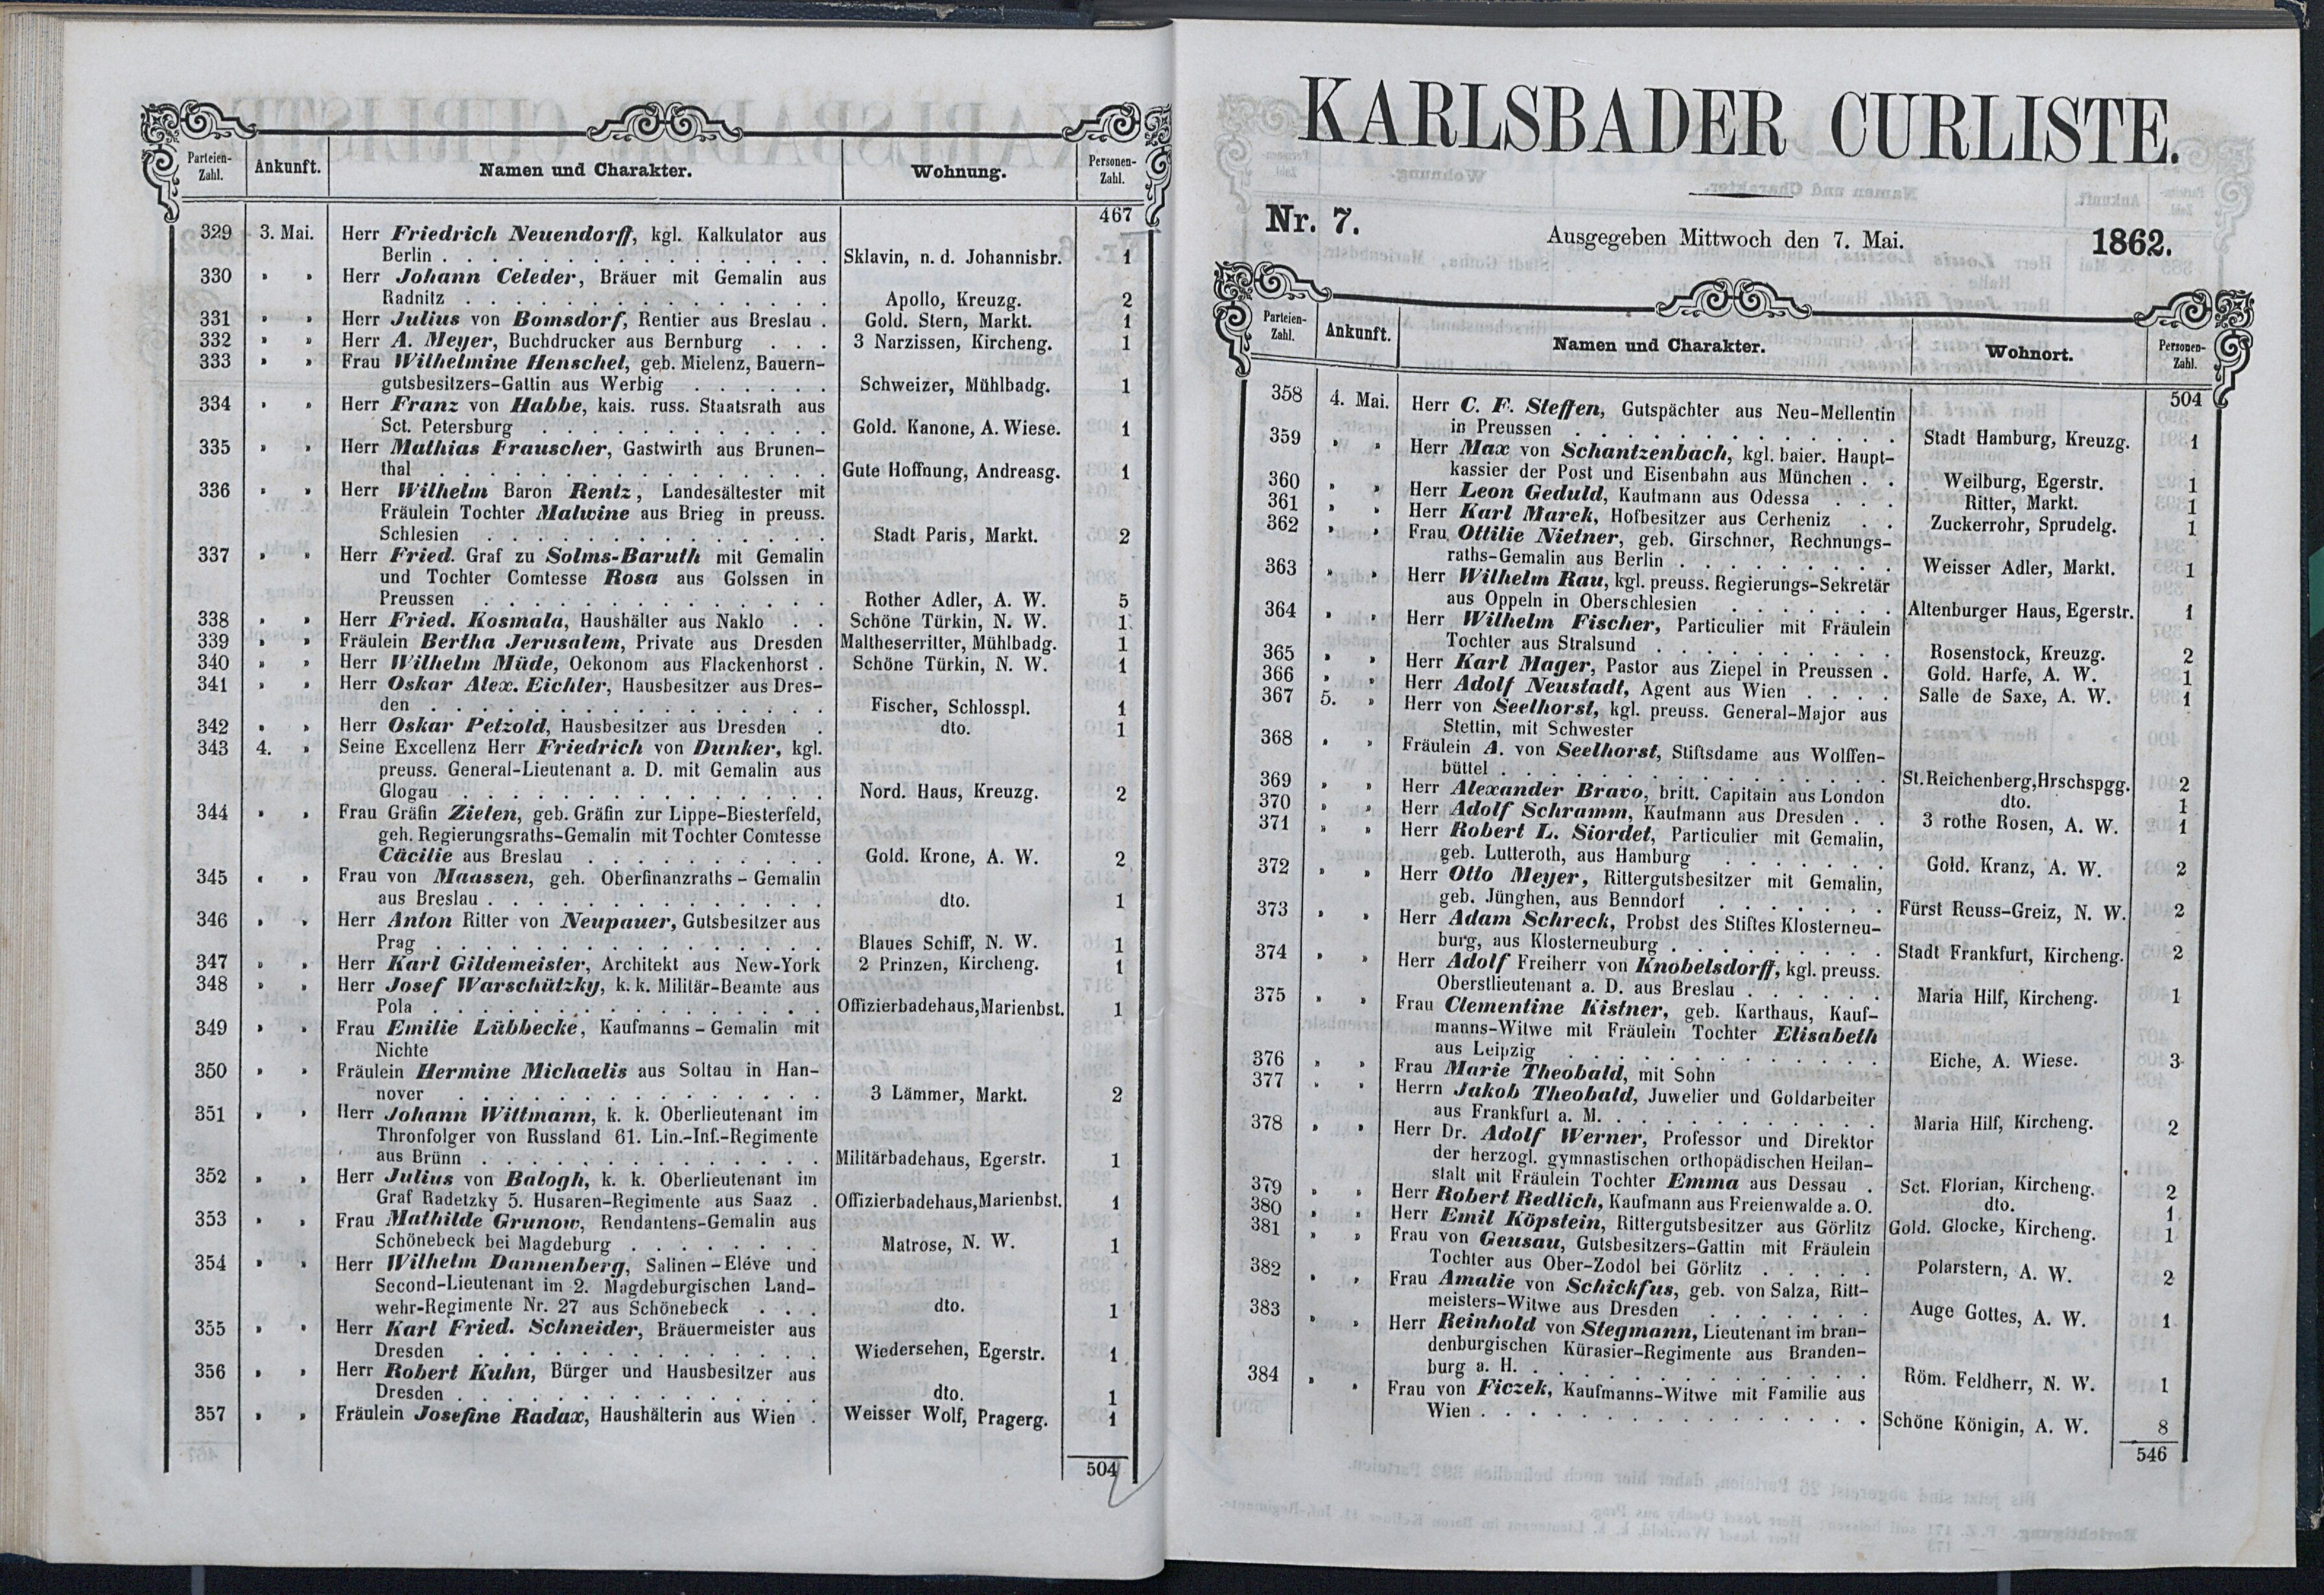 Parteien-Zahl. Ankunft. Namen und Charakter. Wohnung. Personen-Zahl.
467
329 3. Mai. Herr Friedrich Neuendorff, kgl. Kalkulator aus
Berlin . . . Sklavin, n. d. Johannisbr. 1
330 » » Herr Johann Celeder, Bräuer mit Gemalin aus
Radnitz . . . Apollo, Kreuzg. 2
331 » » Herr Julius von Bomsdorf, Rentier aus Breslau . Gold. Stern, Markt. 1
332 » » Herr A. Meyer, Buchdrucker aus Bernburg . . . 3 Narzissen, Kircheng. 1
333 » » Frau Wilhelmine Henschel, geb. Mielenz, Bauern-
gutsbesitzers-Gattin aus Werbig . . . Schweizer, Mühlbadg. 1
334 » » Herr Franz von Habbe, kais. russ. Staatsrath aus
Sct. Petersburg . . . Gold. Kanone, A. Wiese. 1
335 » » Herr Mathias Frauscher, Gastwirth aus Brunen-
thal . . . Gute Hoffnung, Andreasg. 1
336 » » Herr Wilhelm Baron Rentz, Landesältester mit
Fräulein Tochter Malwine aus Brieg in preuss.
Schlesien . . . Stadt Paris, Markt. 2
337 » » Herr Fried. Graf zu Solms-Baruth mit Gemalin
und Tochter Comtesse Rosa aus Golssen in
Preussen . . . Rother Adler, A. W. 5
338 » » Herr Fried. Kosmala, Haushälter aus Naklo . . Schöne Türkin, N. W. 1
339 » » Fräulein Bertha Jerusalem, Private aus Dresden Maltheserritter, Mühlbadg. 1
340 » » Herr Wilhelm Müde, Oekonom aus Flackenhorst . Schöne Türkin, N. W. 1
341 » » Herr Oskar Alex. Eichler, Hausbesitzer aus Dres-
den . . . Fischer, Schlosspl. 1
342 » » Herr Oskar Petzold, Hausbesitzer aus Dresden . dto. 1
343 4. » Seine Excellenz Herr Friedrich von Dunker, kgl.
preuss. General-Lieutenant a. D. mit Gemalin aus
Glogau . . . Nord. Haus, Kreuzg. 2
344 » » Frau Gräfin Zieten, geb. Gräfin zur Lippe-Biesterfeld,
geh. Regierungsraths-Gemalin mit Tochter Comtesse
Cäcilie aus Breslau . . . Gold. Krone, A. W. 2
345 » » Frau von Maassen, geh. Oberfinanzraths-Gemalin
aus Breslau . . . dto. 1
346 » » Herr Anton Ritter von Neupauer, Gutsbesitzer aus
Prag . . . Blaues Schiff, N. W. 1
347 » » Herr Karl Gildemeister, Architekt aus New-York 2 Prinzen, Kircheng. 1
348 » » Herr Josef Warschützky, k. k. Militär-Beamte aus
Pola . . . Offizierbadehaus, Marienbst. 1
349 » » Frau Emilie Lübbecke, Kaufmanns-Gemalin mit
Nichte
350 » » Fräulein Hermine Michaelis aus Soltau in Han-
nover . . . 3 Lämmer, Markt. 2
351 » » Herr Johann Wittmann, k. k. Oberlieutenant im
Thronfolger von Russland 61. Lin.-Inf.-Regimente
aus Brünn . . . Militärbadehaus, Egerstr. 1
352 » » Herr Julius von Balogh, k. k. Oberlieutenant im
Graf Radetzky 5. Husaren-Regimente aus Saaz . Offizierbadehaus, Marienbst. 1
353 » » Frau Mathilde Grunow, Rendantens-Gemalin aus
Schönebeck bei Magdeburg . . . Matrose, N. W. 1
354 » » Herr Wilhelm Dannenberg, Salinen-Eléve und
Second-Lieutenant im 2. Magdeburgischen Land-
wehr-Regimente Nr. 27 aus Schönebeck . . . dto. 1
355 » » Herr Karl Fried. Schneider, Bräuermeister aus
Dresden . . . Wiedersehen, Egerstr. 1
356 » » Herr Robert Kuhn, Bürger und Hausbesitzer aus
Dresden . . . dto. 1
357 » » Fräulein Josefine Radax, Haushälterin aus Wien . Weisser Wolf, Pragerg. 1
504
KARLSBADER CURLISTE.
Nr. 7. Ausgegeben Mittwoch den 7. Mai. 1862.
Parteien-Zahl. Ankunft. Namen und Charakter. Wohnort. Personen-Zahl.
504
358 4. Mai. Herr C. F. Steffen, Gutspächter aus Neu-Mellentin
in Preussen . . . Stadt Hamburg, Kreuzg. 1
359 » » Herr Max von Schantzenbach, kgl. baier. Haupt-
kassier der Post und Eisenbahn aus München . . Weilburg, Egerstr. 1
360 » » Herr Leon Geduld, Kaufmann aus Odessa . . . Ritter, Markt. 1
361 » » Herr Karl Marek, Hofbesitzer aus Cerheniz . . Zuckerrohr, Sprudelg. 1
362 » » Frau Ottilie Nietner, geb. Girschner, Rechnungs-
raths-Gemalin aus Berlin . . . Weisser Adler, Markt. 1
363 » » Herr Wilhelm Rau, kgl. preuss. Regierungs-Sekretär
aus Oppeln in Oberschlesien . . . Altenburger Haus, Egerstr. 1
364 » » Herr Wilhelm Fischer, Particulier mit Fräulein
Tochter aus Stralsund . . . Rosenstock, Kreuzg. 2
365 » » Herr Karl Mager, Pastor aus Ziepel in Preussen . Gold. Harfe, A. W. 1
366 » » Herr Adolf Neustadt, Agent aus Wien . . . Salle de Saxe, A. W. 1
367 5. » Herr von Seelhorst, kgl. preuss. General-Major aus
Stettin, mit Schwester
368 » » Fräulein A. von Seelhorst, Stiftsdame aus Wolffen-
büttel . . . St. Reichenberg, Hrschspgg. 2
369 » » Herr Alexander Bravo, britt. Capitain aus London dto. 1
370 » » Herr Adolf Schramm, Kaufmann aus Dresden . . 3 rothe Rosen, A. W. 1
371 » » Herr Robert L. Siordet, Particulier mit Gemalin,
geb. Lutteroth, aus Hamburg . . . Gold. Kranz, A. W. 2
372 » » Herr Otto Meyer, Rittergutsbesitzer mit Gemalin,
geb. Jünghen, aus Benndorf . . . Fürst Reuss-Greiz, N. W. 2
373 » » Herr Adam Schreck, Probst des Stiftes Klosterneu-
burg, aus Klosterneuburg . . . Stadt Frankfurt, Kircheng. 2
374 » » Herr Adolf Freiherr von Knobelsdorff, kgl. preuss.
Oberstlieutenant a. D. aus Breslau . . . Maria Hilf, Kircheng. 1
375 » » Frau Clementine Kistner, geb. Karthaus, Kauf-
manns-Witwe mit Fräulein Tochter Elisabeth
aus Leipzig . . . Eiche, A. Wiese. 3
376 » » Frau Marie Theobald, mit Sohn
377 » » Herrn Jakob Theobald, Juwelier und Goldarbeiter
aus Frankfurt a. M. . . . Maria Hilf, Kircheng. 2
378 » » Herr Dr. Adolf Werner, Professor und Direktor
der herzogl. gymnastischen orthopädischen Heilan-
stalt mit Fräulein Tochter Emma aus Dessau . Sct. Florian, Kircheng. 2
379 » » Herr Robert Redlich, Kaufmann aus Freienwalde a. O. dto. 1
380 » » Herr Emil Köpstein, Rittergutsbesitzer aus Görlitz Gold. Glocke, Kircheng. 1
381 » » Frau von Geusau, Gutsbesitzers-Gattin mit Fräulein
Tochter aus Ober-Zodol bei Görlitz . . . Polarstern, A. W. 2
382 » » Frau Amalie von Schickfus, geb. von Salza, Ritt-
meisters-Witwe aus Dresden . . . Auge Gottes, A. W. 1
383 » » Herr Reinhold von Stegmann, Lieutenant im bran-
denburgischen Kürasier-Regimente aus Branden-
burg a. H. . . . Röm. Feldherr, N. W. 1
384 » » Frau von Ficzek, Kaufmanns-Witwe mit Familie aus
Wien . . . Schöne Königin, A. W. 8
546